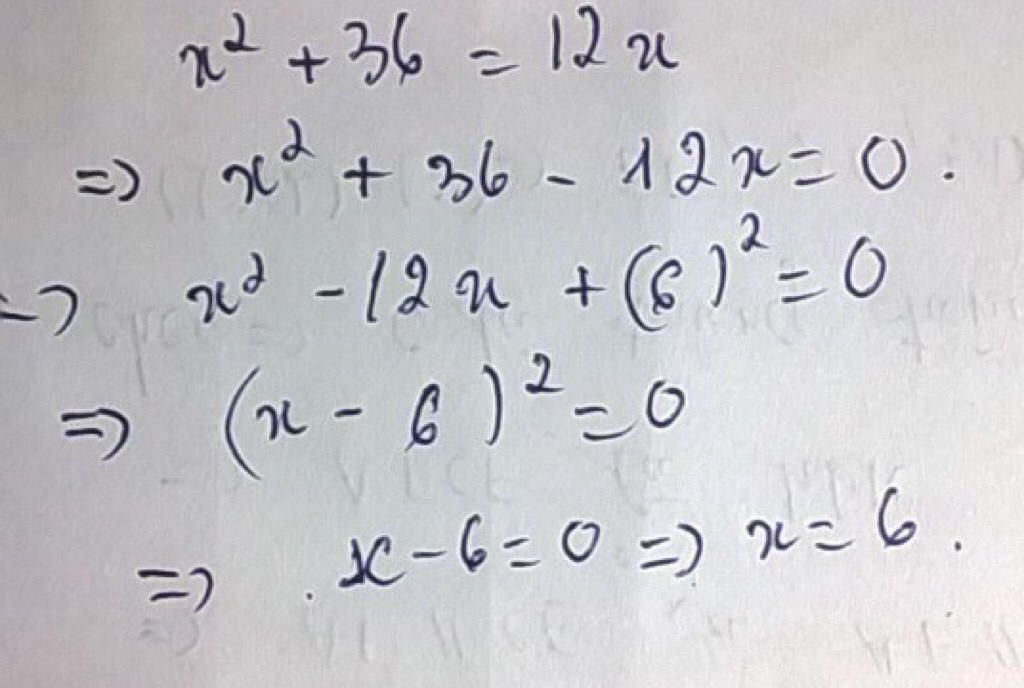 x² + 36 = 12x
=> x² + 36 - 12x = 0.
=> x² - 12x + (6)² = 0
=> (x - 6)² = 0
=> . x - 6 = 0 => x = 6.